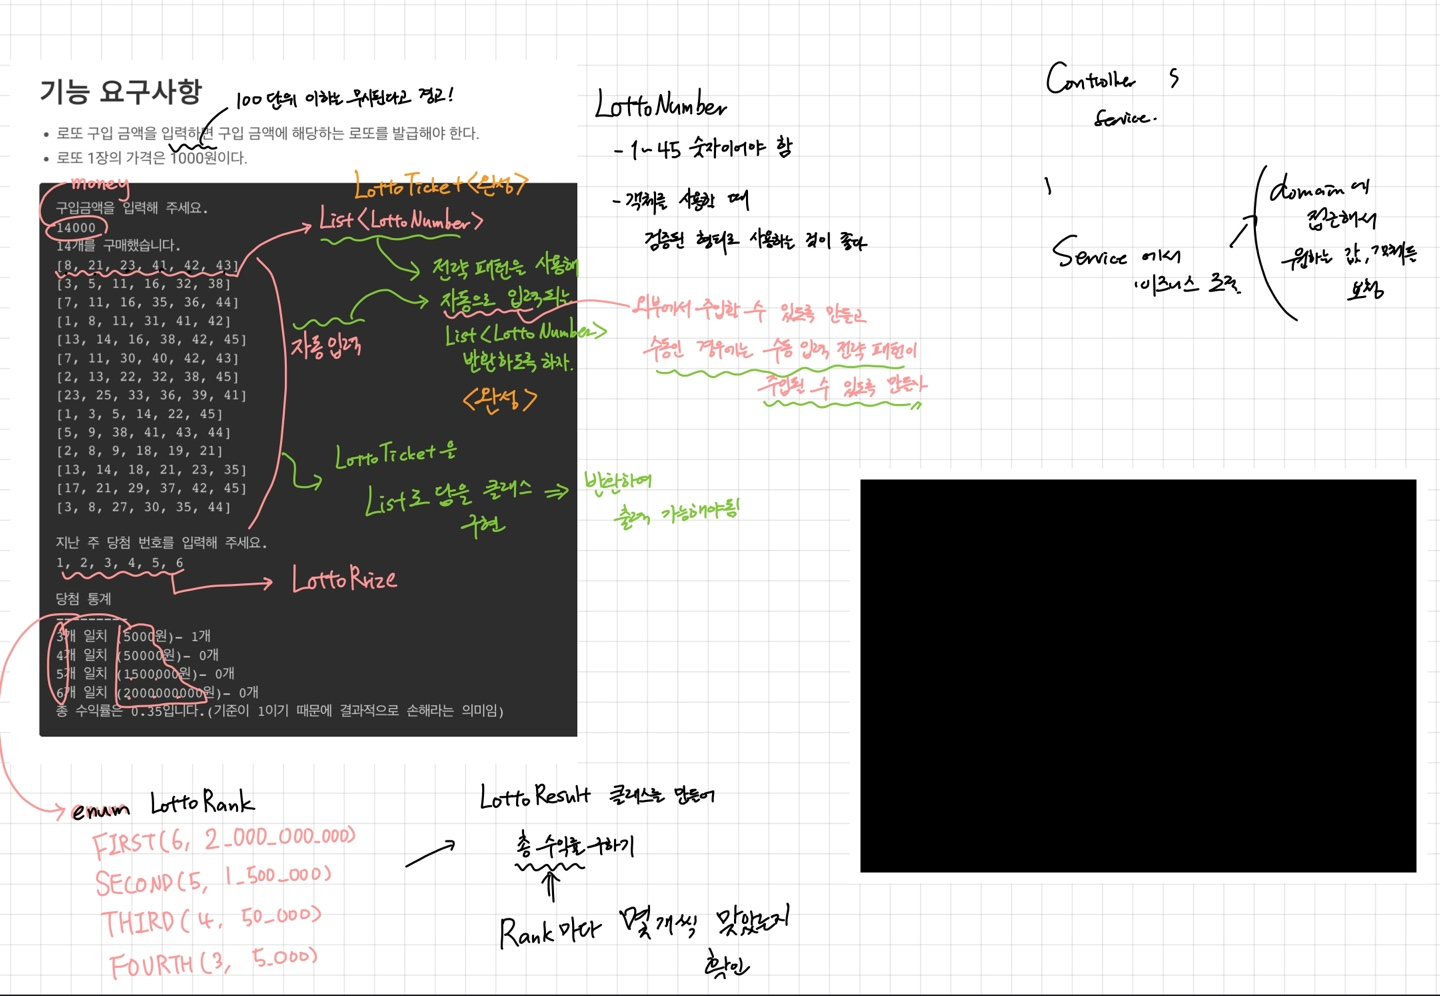 기능 요구사항
100 단위 이하는 무시된다고 경고!
• 로또 구입 금액을 입력하면 구입 금액에 해당하는 로또를 발급해야 한다.
• 로또 1장의 가격은 1000원이다.
money
구입금액을 입력해 주세요.
14000
14개를 구매했습니다.
[8, 21, 23, 41, 42, 43]
[3, 5, 11, 16, 32, 38]
[7, 11, 16, 35, 36, 44]
[1, 8, 11, 31, 41, 42]
[13, 14, 16, 38, 42, 45]
[7, 11, 30, 40, 42, 43]
[2, 13, 22, 32, 38, 45]
[23, 25, 33, 36, 39, 41]
[1, 3, 5, 14, 22, 45]
[5, 9, 38, 41, 43, 44]
[2, 8, 9, 18, 19, 21]
[13, 14, 18, 21, 23, 35]
[17, 21, 29, 37, 42, 45]
[3, 8, 27, 30, 35, 44]
지난 주 당첨 번호를 입력해 주세요.
1, 2, 3, 4, 5, 6
당첨 통계
---------
3개 일치 (5000원)- 1개
4개 일치 (50000원)- 0개
5개 일치 (1500000원)- 0개
6개 일치 (2000000000원)- 0개
총 수익률은 0.35입니다.(기준이 1이기 때문에 결과적으로 손해라는 의미임)
LottoTicket <완성>
List<LottoNumber>
전략 패턴을 사용해
자동으로 입력되는
List<LottoNumber>
반환하도록 하자.
<완성>
자동입력
LottoTicket을
List로 담을 클래스
구현
⇒ 반환하여
출력 가능해야됨!
LottoPrize
LottoNumber
- 1~45 숫자이어야 함
- 객체를 사용할 때
검증된 형태로 사용하는 것이 좋다
외부에서 주입할 수 있도록 만들고
수동인 경우에는 수동 입력 전략 패턴이
주입될 수 있도록 만든다
Controller S
Service.
Service에서
비즈니스 로직
domain에
접근해서
원하는 값, 객체를
요청
enum LottoRank
FIRST(6, 2_000_000_000)
SECOND(5, 1_500_000)
THIRD(4, 50_000)
FOURTH(3, 5_000)
LottoResult 클래스를 만들어
총 수익률 구하기
Rank마다 몇개씩 맞았는지
확인